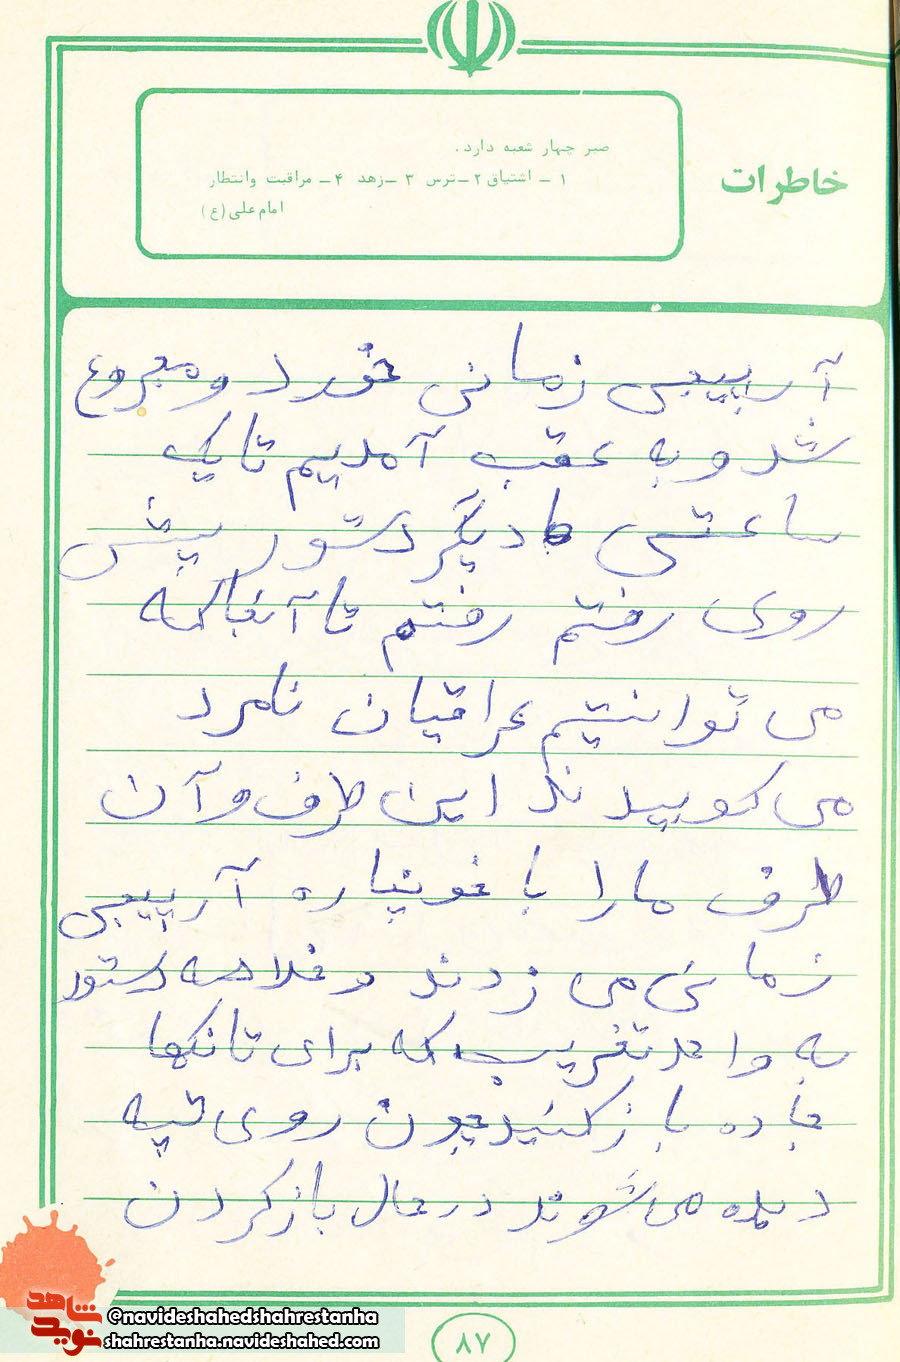 خاطرات
صبر چهار شعبه دارد.
۱ - اشتیاق ۲ - ترس ۳ - زهد ۴ - مراقبت وانتظار
امام علی (ع)
آرپیجی زمانی خورد و مجروع
شد و به عقب آمدیم تا یک
ساعتی دیگر دستور پیش
روی رفتم رفتم تا آنجا که
می توانستیم عراقیان نامرد
می کوبیدند این طرف و آن
طرف ما را با خونپاره آرپیجی
زمانی می زدند و خلاصه دستور
به واحد تخریب که برای تانکها
جاده باز کنید چون روی تپه
دیده می شوند در حال باز کردن
۸۷
شاهد
نوید
©navideshahedshahrestanha
shahrestanha.navideshahed.com